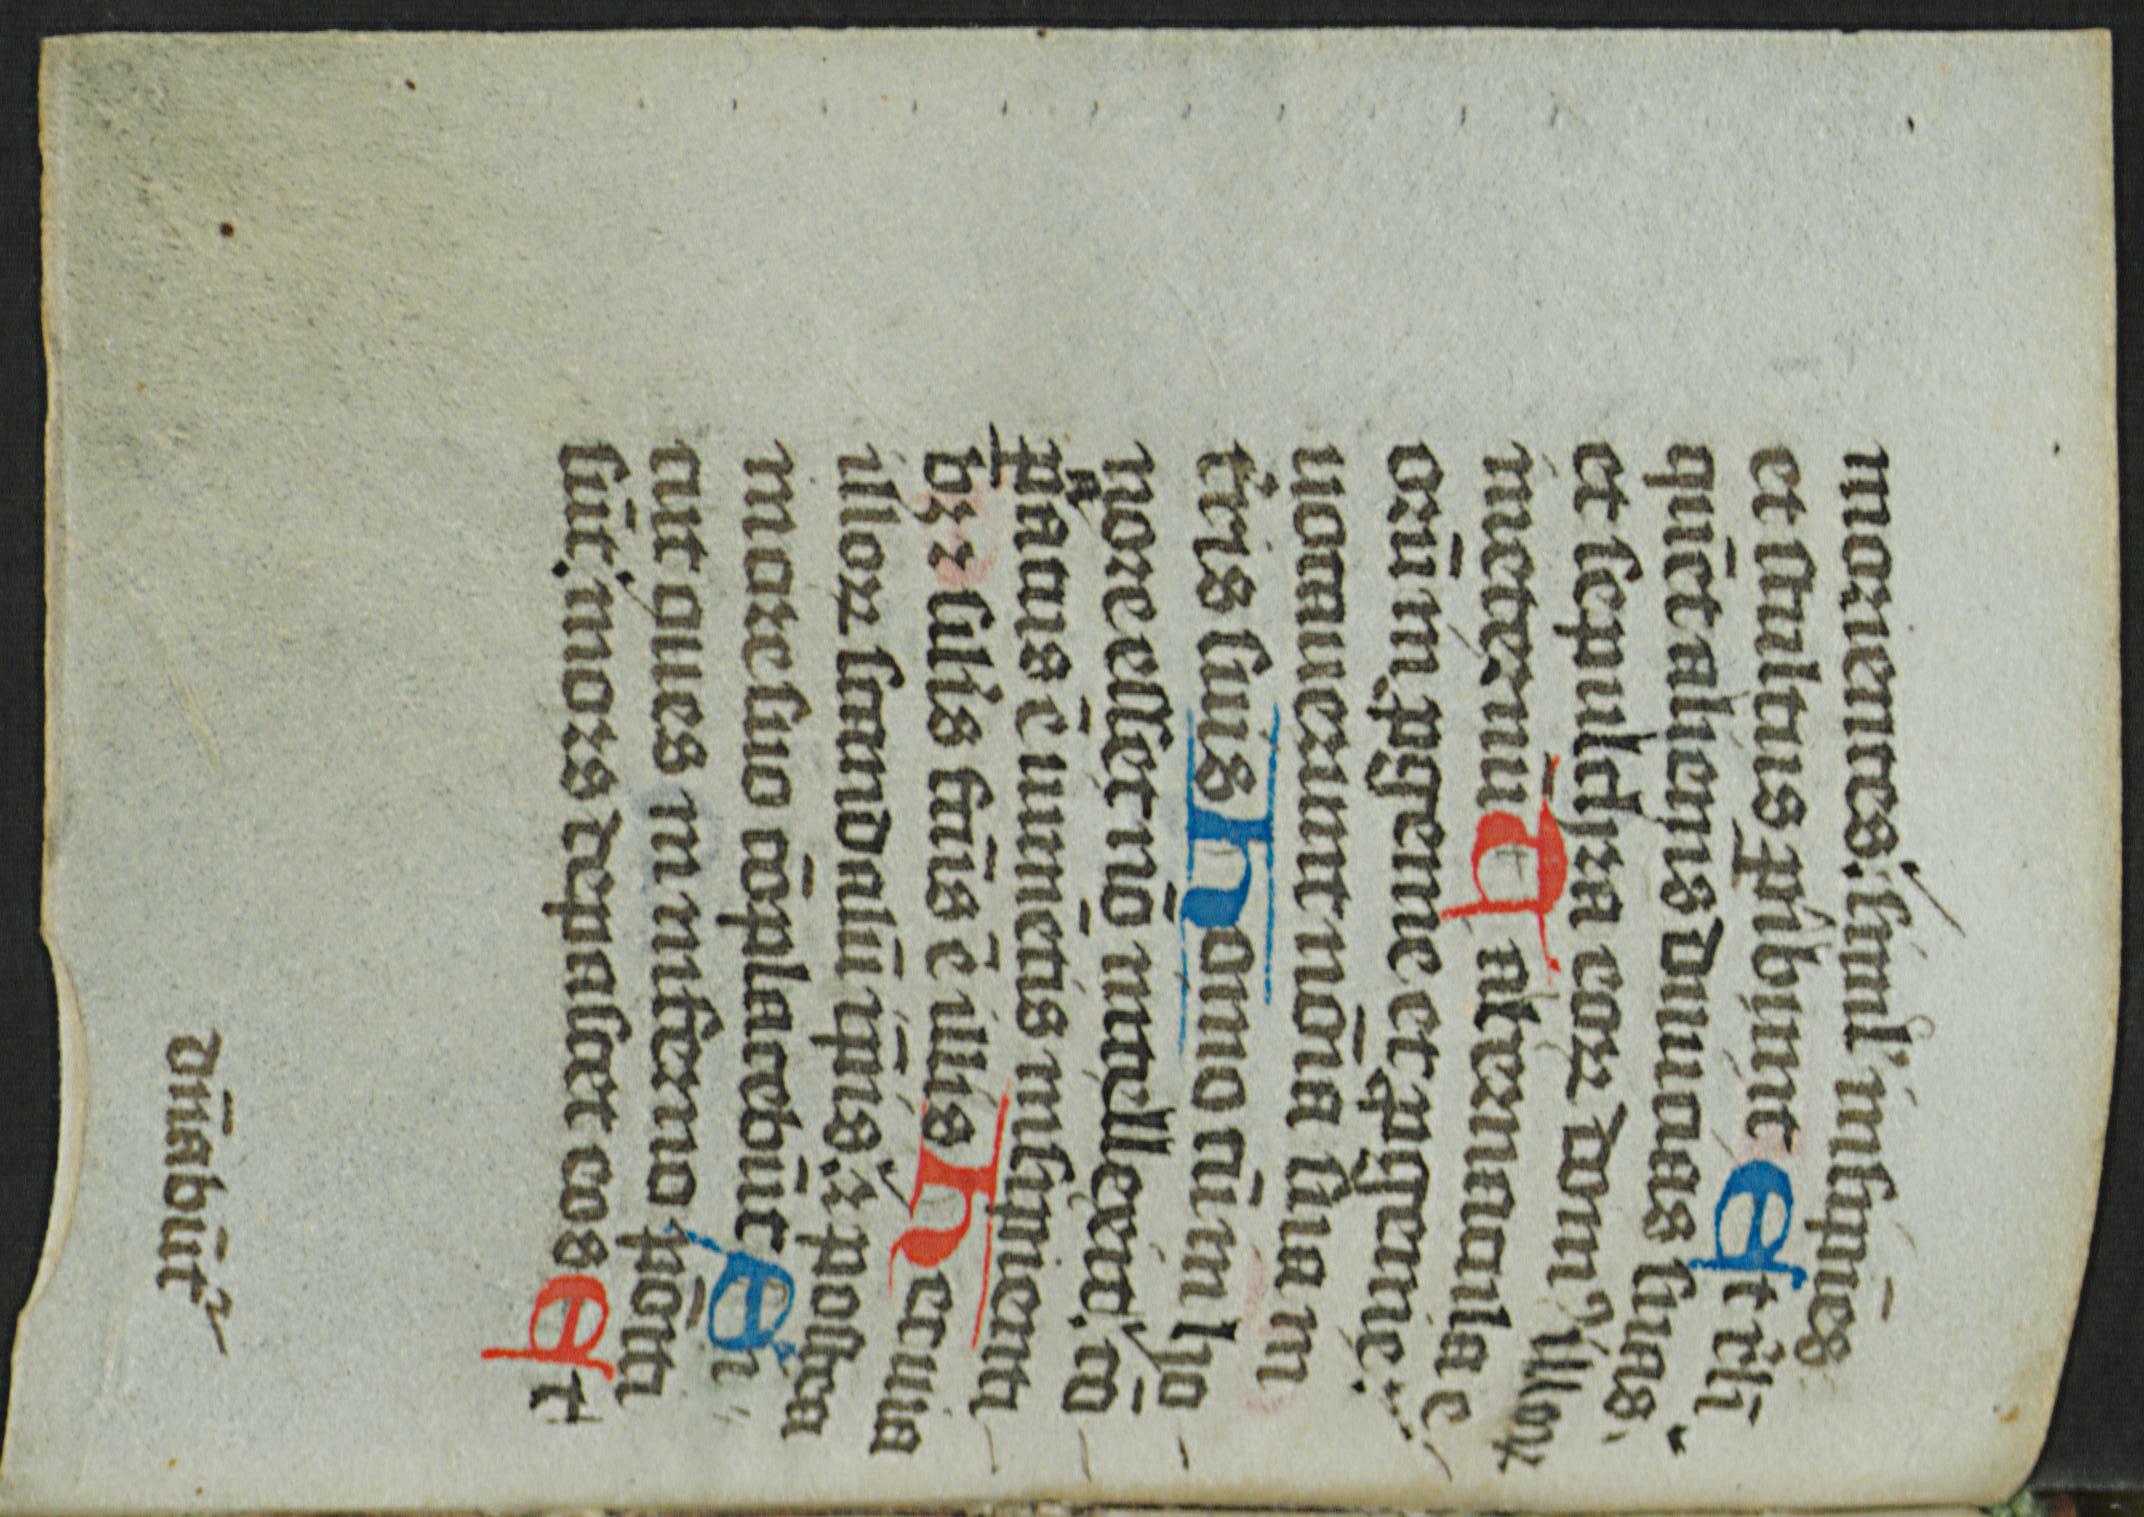 morientes: simul insipiēs
et stultus ꝑibūnt Et rēlī
quēt alienis diuicias suas.
et sepulchra eoꝝ domꝰ illoꝝ
ineternū Tabernacula e
oꝝ in ꝓgenie et ꝓgenie:
uocauerunt nōīa sua in
tr̄is suis Homo cū in ho
nore esset nō intellexit: cō
ꝑatus ē iumētis insipienti
bꝫ ⁊ sil̓is factus ē illis Hec uia
illoꝝ scandalū ip̄is: ⁊ postea
in ore suo cōplacebūt Si
cut oues in inferno pōiti
sūt: mors depascet eos Et
dn̄abūtᷣ